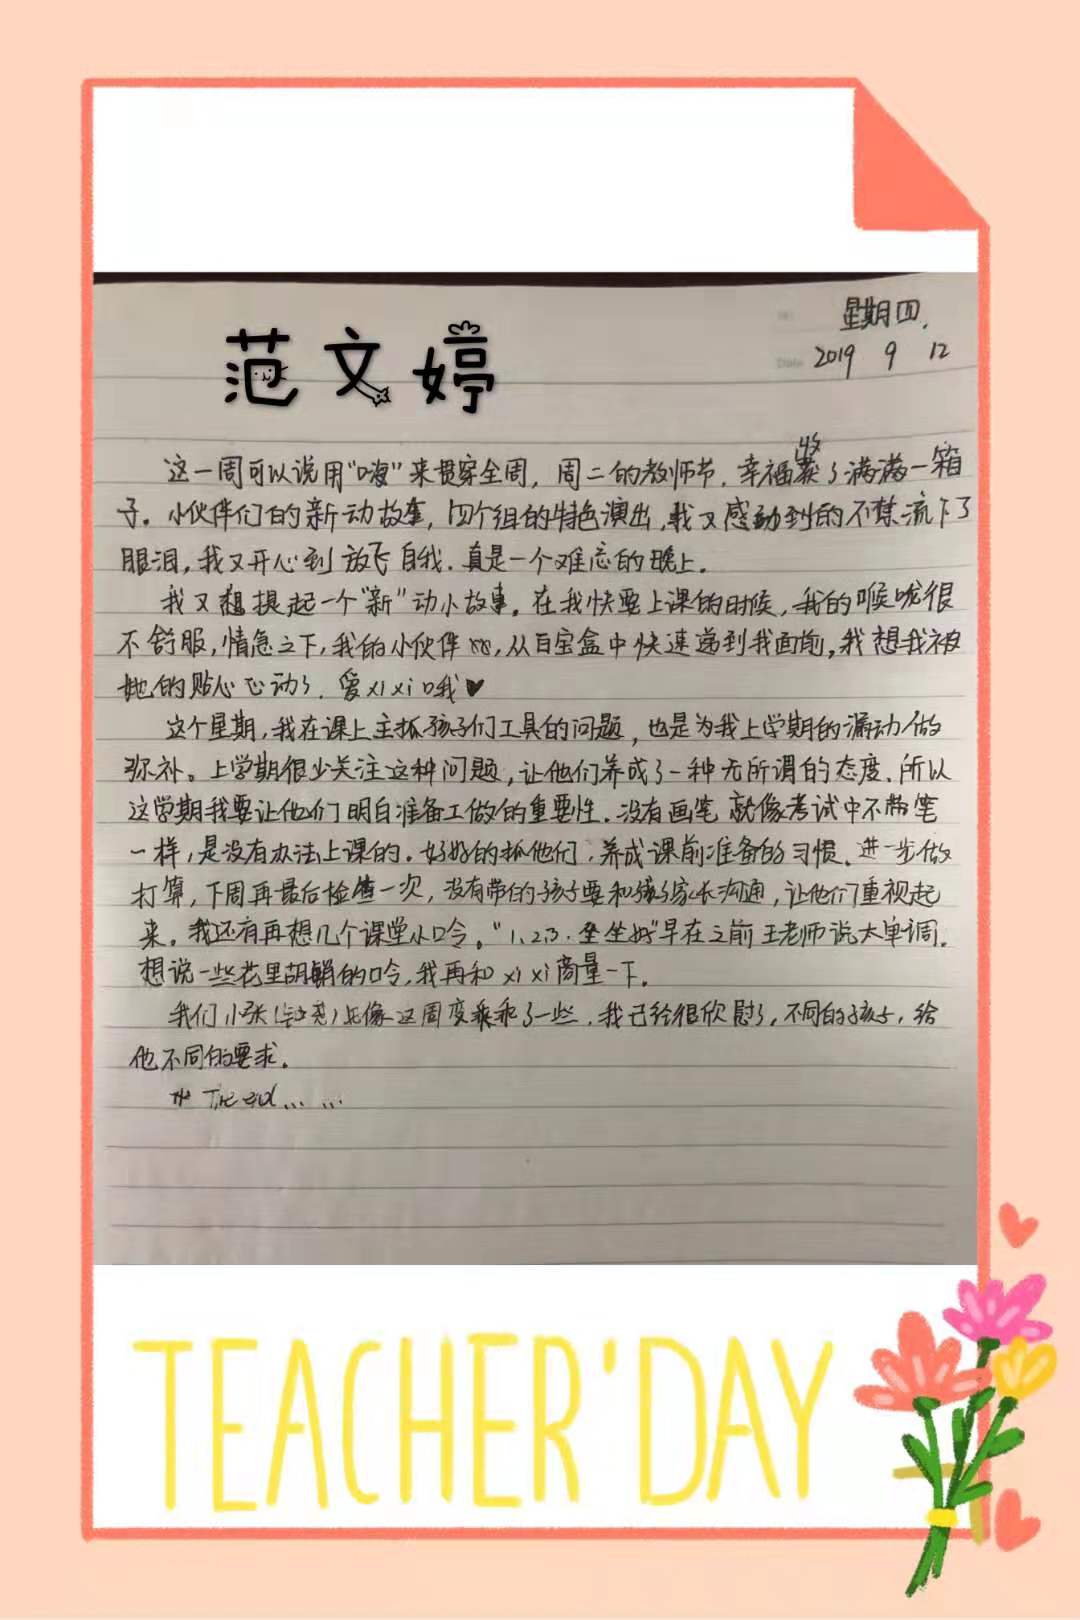 星期四.
2019 9 12
范文婷
这一周可以说用“嗨”来贯穿全周,周二的教师节,幸福收获了满满一箱
子。小伙伴们的新动故事,四个组的特色演出,我又感动到的不禁流下了
眼泪,我又开心到放飞自我.真是一个难忘的晚上.
我又想提起一个“新”动小故事。在我快要上课的时候,我的喉咙很
不舒服,情急之下,我的小伙伴xixi,从百宝盒中快速递到我面前,我想我被
她的贴心心动了.爱xixi哦♥
这个星期,我在课上主抓孩子们工具的问题,也是为我上学期的漏动做
弥补。上学期很少关注这种问题,让他们养成了一种无所谓的态度.所以
这学期我要让他们明白准备工做的重要性.没有画笔就像考试中不带笔
一样,是没有办法上课的。好好的抓他们,养成课前准备的习惯.进一步做
打算,下周再最后检查一次,没有带的孩子要和家长沟通,让他们重视起
来。我还有再想几个课堂小口令。“1.2.3.坐坐好”早在之前王老师说太单调.
想说一些花里胡哨的口令,我再和xixi商量一下.
我们小张()好像这周变乖乖了一些.我已经很欣慰了,不同的孩子,给
他不同的要求.
The end... ...
TEACHER'DAY